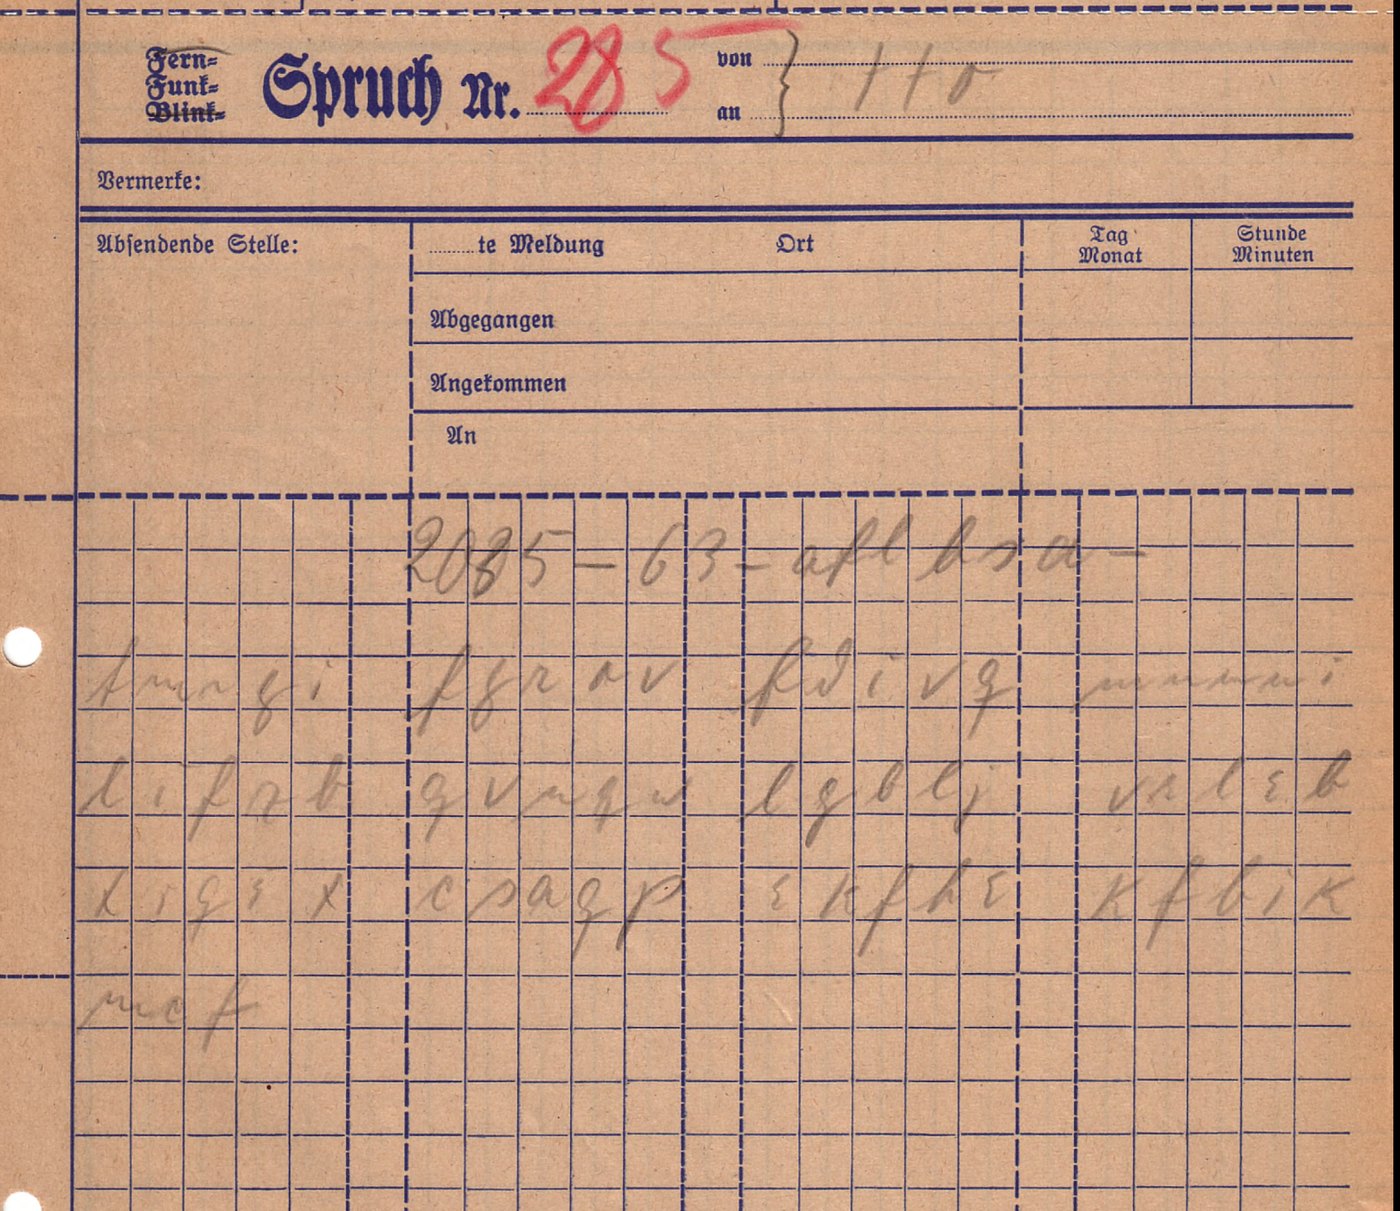 Fern=
Funk=
Blink=
Spruch Nr. 285
von
an
Vermerke:
Absendende Stelle:
te Meldung Ort
Tag Monat
Stunde Minuten
Abgegangen
Angekommen
An
2035 – 63 – afl bsa –
fgrav fdivq
lifrb lgblj vrleb
xigix csaqp ekfhe kfbik
mcf